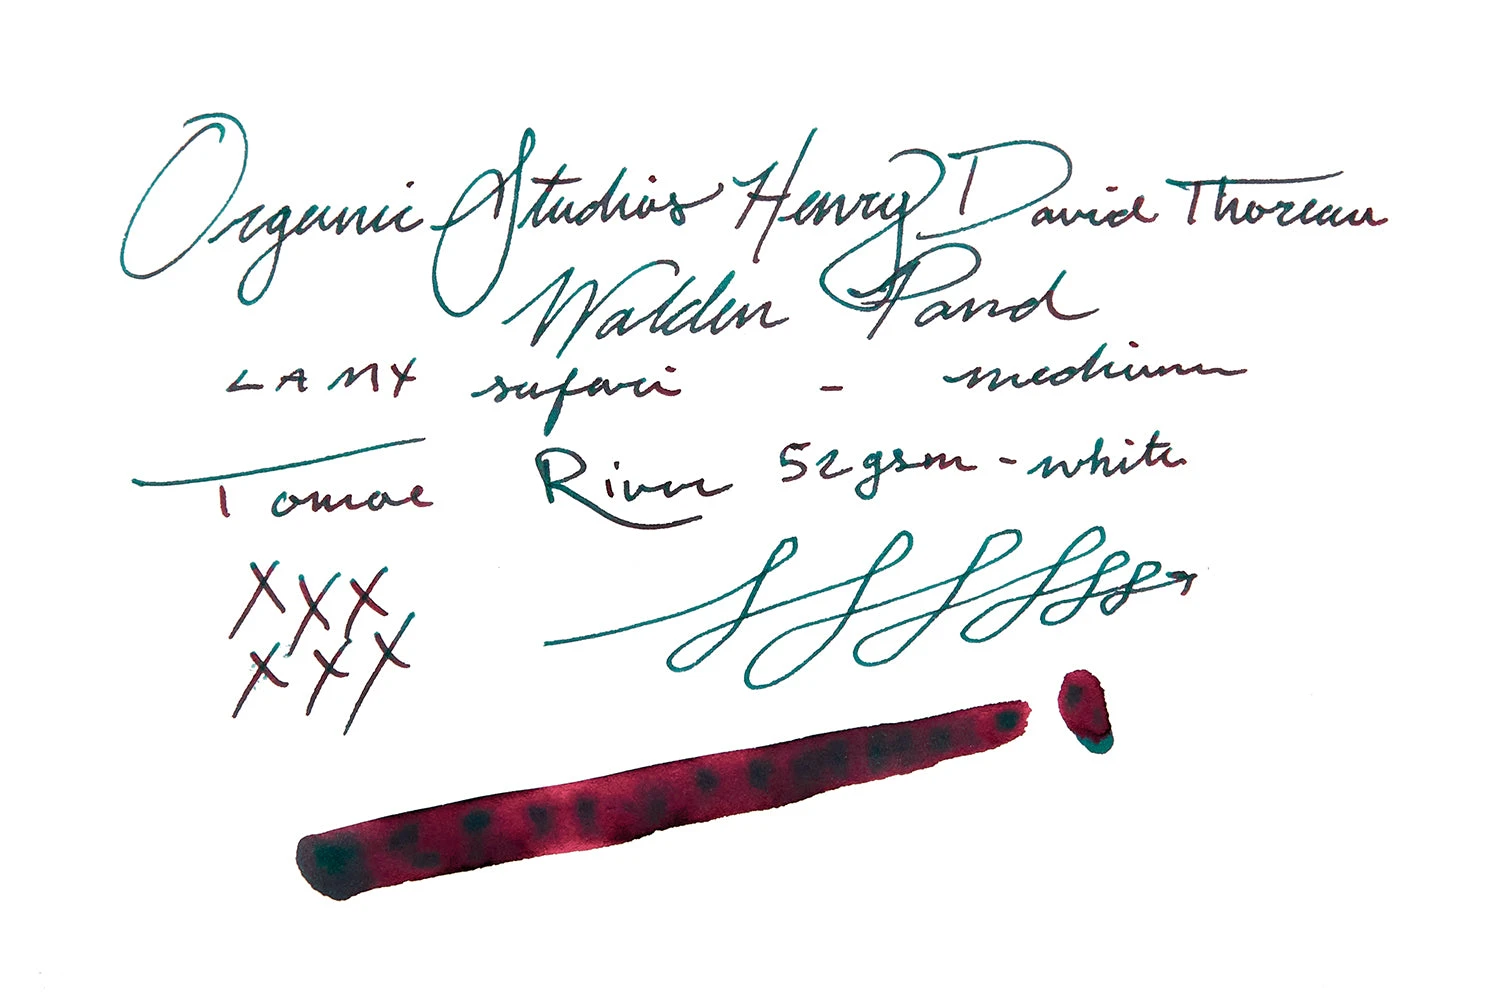 Organic Studios Henry David Thoreau
Walden Pond
LAMY safari - medium
Tomoe River 52gsm - white
XXX
XXX